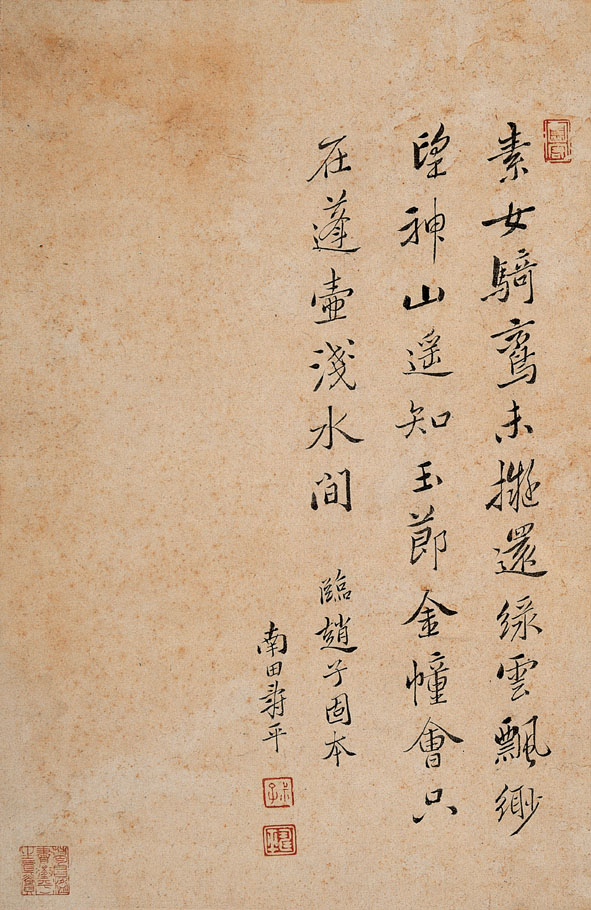 素女騎鸞未擬還綠雲飄緲
望神山遥知玉節金幢會只
在蓬壷淺水間
臨趙子固本
南田壽平